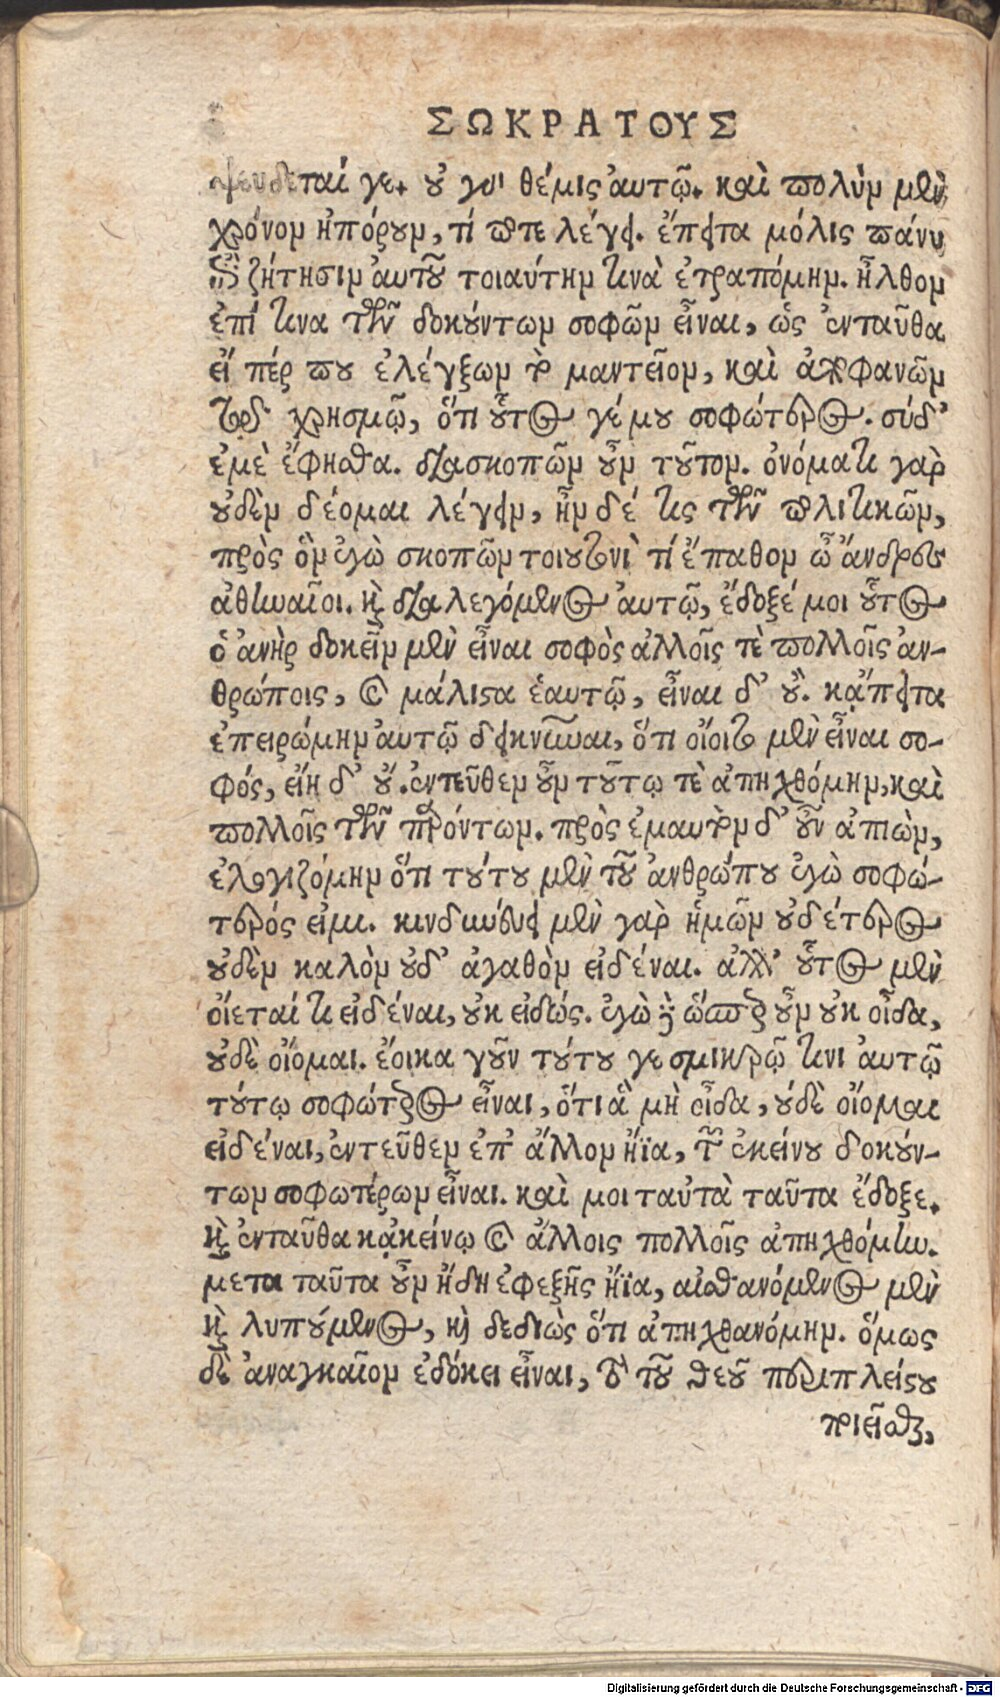 ΣΩΚΡΑΤΟΥΣ
ψεύδεταί γε. οὐ γὰρ θέμις αὐτῷ. καὶ πολὺν μὲν
χρόνον ἠπόρουν, τί ποτε λέγει. ἔπειτα μόλις πάνυ
ἐπὶ ζήτησιν αὐτοῦ τοιαύτην τινὰ ἐτραπόμην. ἦλθον
ἐπί τινα τῶν δοκούντων σοφῶν εἶναι, ὡς ἐνταῦθα
εἴ πέρ που ἐλέγξων τὸ μαντεῖον, καὶ ἀποφανῶν
τῷ χρησμῷ, ὅτι οὗτος γέ μου σοφώτερος. σύ δ'
ἐμὲ ἔφησθα. διασκοπῶν οὖν τοῦτον. ὀνόματι γὰρ
οὐδὲν δέομαι λέγειν, ἦν δέ τις τῶν πολιτικῶν,
πρὸς ὃν ἐγὼ σκοπῶν τοιοῦτόν τί ἔπαθον ὦ ἄνδρες
ἀθηναῖοι. καὶ διαλεγόμενος αὐτῷ, ἔδοξέ μοι οὗτος
ὁ ἀνὴρ δοκεῖν μὲν εἶναι σοφὸς ἀλλοῖς τὲ πολλοῖς ἀν-
θρώποις, καὶ μάλιστα ἑαυτῷ, εἶναι δ' οὔ. κᾄπειτα
ἐπειρώμην αὐτῷ δεικνύναι, ὅτι οἴοιτο μὲν εἶναι σο-
φός, εἴη δ' οὔ. ἐντεῦθεν οὖν τούτῳ τὲ ἀπηχθόμην, καὶ
πολλοῖς τῶν παρόντων. πρὸς ἐμαυτὸν δ' οὖν ἀπιὼν,
ἐλογιζόμην ὅτι τούτου μὲν τοῦ ἀνθρώπου ἐγὼ σοφώ-
τερός εἰμι. κινδυνεύει μὲν γὰρ ἡμῶν οὐδέτερος
οὐδὲν καλὸν οὐδ' ἀγαθὸν εἰδέναι. ἀλλ' οὗτος μὲν
οἴεταί τι εἰδέναι, οὐκ εἰδώς. ἐγὼ δὲ ὥσπερ οὖν οὐκ οἶδα,
οὐδὲ οἴομαι. ἔοικα γοῦν τούτου γε σμικρῷ τινι αὐτῷ
τούτῳ σοφώτερος εἶναι, ὅτι ἃ μὴ οἶδα, οὐδὲ οἴομαι
εἰδέναι, ἐντεῦθεν ἐπ' ἄλλον ᾔϊα, τῶν ἐκείνου δοκούν-
των σοφωτέρων εἶναι. καὶ μοι ταὐτὰ ταῦτα ἔδοξε.
καὶ ἐνταῦθα κᾀκείνῳ καὶ ἄλλοις πολλοῖς ἀπηχθόμην.
μετα ταῦτα οὖν ἤδη ἐφεξῆς ᾔϊα, αἰσθανόμενος μὲν
καὶ λυπούμενος, καὶ δεδιὼς ὅτι ἀπηχθανόμην. ὅμως
δὲ ἀναγκαῖον ἐδόκει εἶναι, τὸ τοῦ θεοῦ περιπλείστου
ποιεῖσθαι,
Digitalisierung gefördert durch die Deutsche Forschungsgemeinschaft - DFG